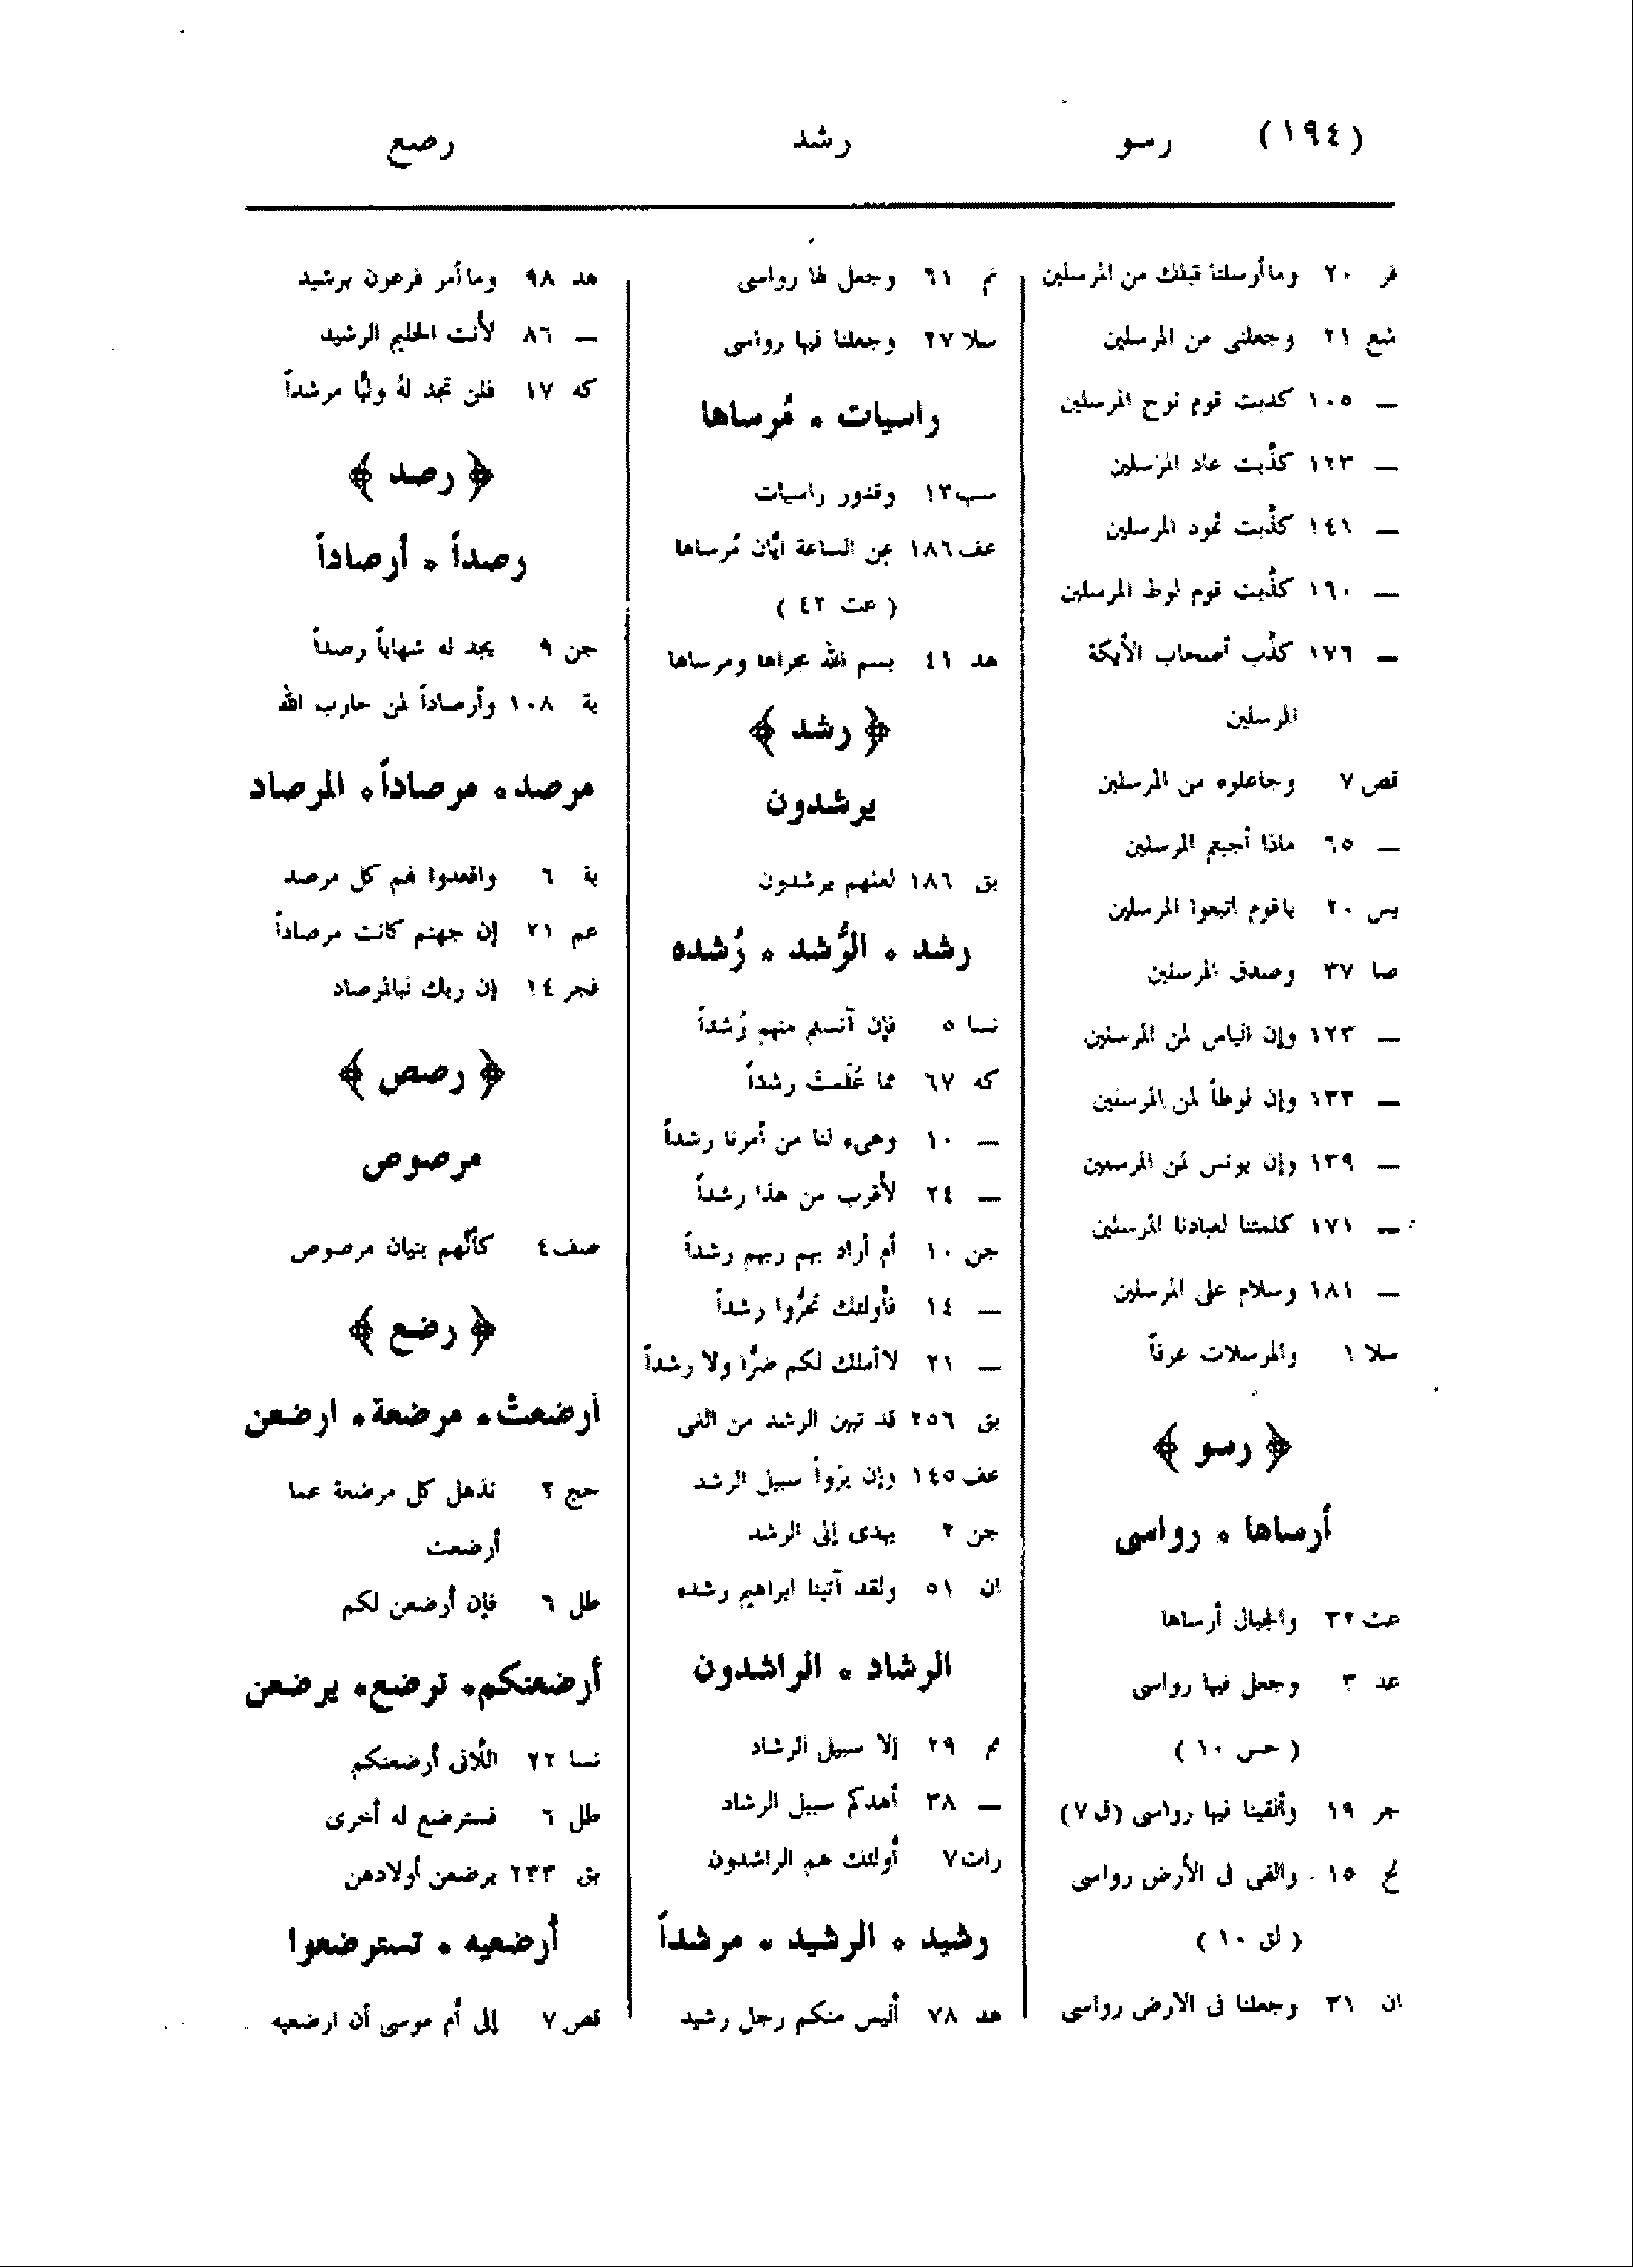 (١٩٤) رسو رشد رصع
فر ٢٠ وما أرسلنا قبلك من المرسلين
شع ٢١ وجعلنى من المرسلين
ــ ١٠٥ كذبت قوم نوح المرسلين
ــ ١٢٣ كذّبت عاد المرسلين
ــ ١٤١ كذّبت ثمود المرسلين
ــ ١٦٠ كذّبت قوم لوط المرسلين
ــ ١٧٦ كذّب أصحاب الأيكة
المرسلين
قص ٧ وجاعلوه من المرسلين
ــ ٦٥ ماذا أجبتم المرسلين
يس ٢٠ ياقوم اتبعوا المرسلين
صا ٣٧ وصدق المرسلين
ــ ١٢٣ وإن الياس لمن المرسلين
ــ ١٣٣ وإن لوطاً لمن المرسلين
ــ ١٣٩ وإن يونس لمن المرسلين
ــ ١٧١ كلمتنا لعبادنا المرسلين
ــ ١٨١ وسلام على المرسلين
سلا ١ والمرسلات عرفاً
﴿ رسو ﴾
أرساها ٠ رواسى
عت ٣٢ والجبال أرساها
عد ٣ وجعل فيها رواسى
( حس ١٠ )
جر ١٩ وألقينا فيها رواسى (ق ٧)
نح ١٥ والقى فى الأرض رواسى
( لق ١٠ )
ان ٣١ وجعلنا فى الارض رواسى
نم ٦١ وجعل لها رواسى
سلا ٢٧ وجعلنا فيها رواسى
راسيات ٠ مُرساها
سب ١٣ وقدور راسيات
عف ١٨٦ عن الساعة ايّان مُرساها
( عت ٤٢ )
هد ٤١ بسم الله مجراها ومرساها
﴿ رشد ﴾
يرشدون
بق ١٨٦ لعلهم يرشدون
رشد ٠ الرُّشد ٠ رُشده
نسا ٥ فإن آنستم منهم رُشداً
كه ٦٧ مما عُلّمتَ رشداً
ــ ١٠ وهيء لنا من أمرنا رشداً
ــ ٢٤ لأقرب من هذا رشداً
جن ١٠ أم أراد بهم ربهم رشداً
ــ ١٤ فأولئك تحرَّوا رشداً
ــ ٢١ لا أملك لكم ضرًّا ولا رشداً
بق ٢٥٦ قد تبين الرشد من الغى
عف ١٤٥ وإن يرَوا سبيل الرشد
جن ٢ يهدى إلى الرشد
ان ٥١ ولقد آتينا ابراهيم رشده
الرشاد ٠ الراشدون
مم ٢٩ إلا سبيل الرشاد
ــ ٣٨ أهدكم سبيل الرشاد
رات ٧ أولئك هم الراشدون
رشيد ٠ الرشيد ٠ مرشداً
هد ٧٨ أليس منكم رجل رشيد
هد ٩٨ وما أمر فرعون برشيد
ــ ٨٦ لأنت الحليم الرشيد
كه ١٧ فلن تجد لهُ وليًّا مرشداً
﴿ رصد ﴾
رصداً ٠ أرصاداً
جن ٩ يجد له شهاباً رصداً
بة ١٠٨ وأرصاداً لمن حارب الله
مرصد ٠ مرصاداً ٠ المرصاد
بة ٦ واقعدوا لهم كل مرصد
عم ٢١ إن جهنم كانت مرصاداً
فجر ١٤ إن ربك لبالمرصاد
﴿ رصص ﴾
مرصوص
صف ٤ كأنّهم بنيان مرصوص
﴿ رضع ﴾
أرضعت ٠ مرضعة ٠ ارضعن
حج ٢ تذهل كل مرضعة عما
أرضعت
طل ٦ فإن أرضعن لكم
أرضعنكم ٠ ترضع ٠ يرضعن
نسا ٢٢ اللّاتى أرضعنكم
طل ٦ فسترضع له أخرى
بق ٢٣٣ يرضعن أولادهن
أرضعيه ٠ تسترضعوا
قص ٧ إلى أم موسى أن ارضعيه